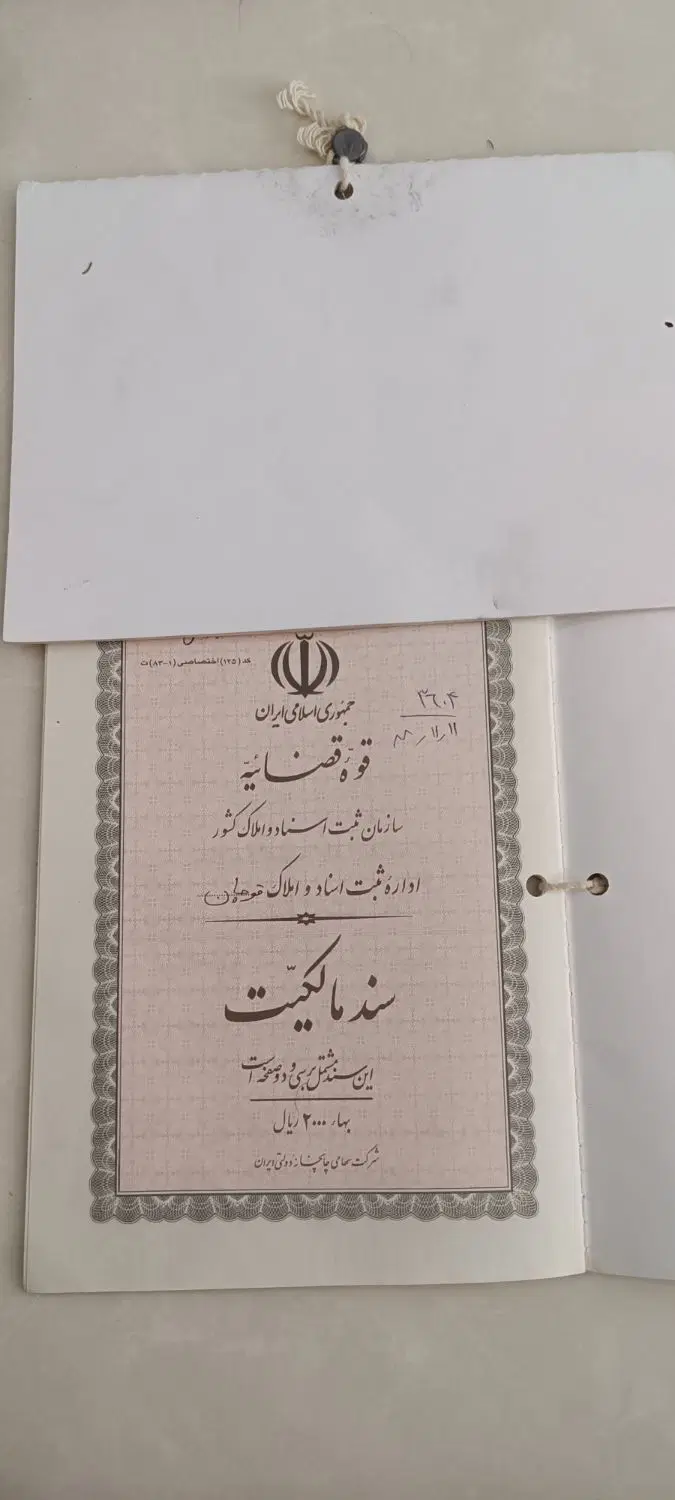 کد (۱۲۵) اختصاصی (۱-۸۳) ت
جمهوری اسلامی ایران
۳۶۰۴
قوّهٔ قضائیّه
سازمان ثبت اسناد و املاک کشور
ادارهٔ ثبت اسناد و املاک
سند مالکیّت
این سند مشتمل بر سی و دو صفحه است
بهاء ۲۰۰۰ ریال
شرکت سهامی چاپخانه دولتی ایران